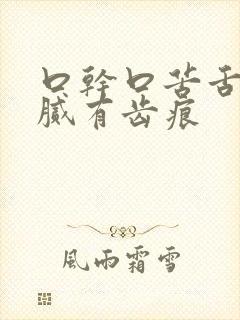 口幹口苦舌
膩有齿痕
風雨霜雪